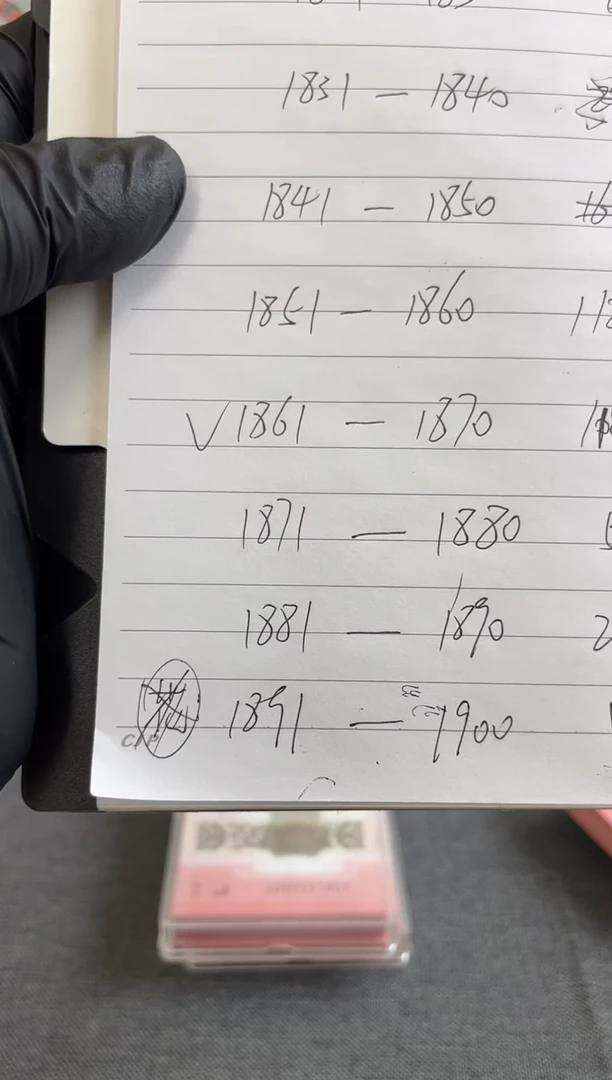 1831 — 1840
1841 — 1850
1851 — 1860 118
√ 1861 — 1870
1871 — 1880
1881 — 1890 2
1891 — 1900